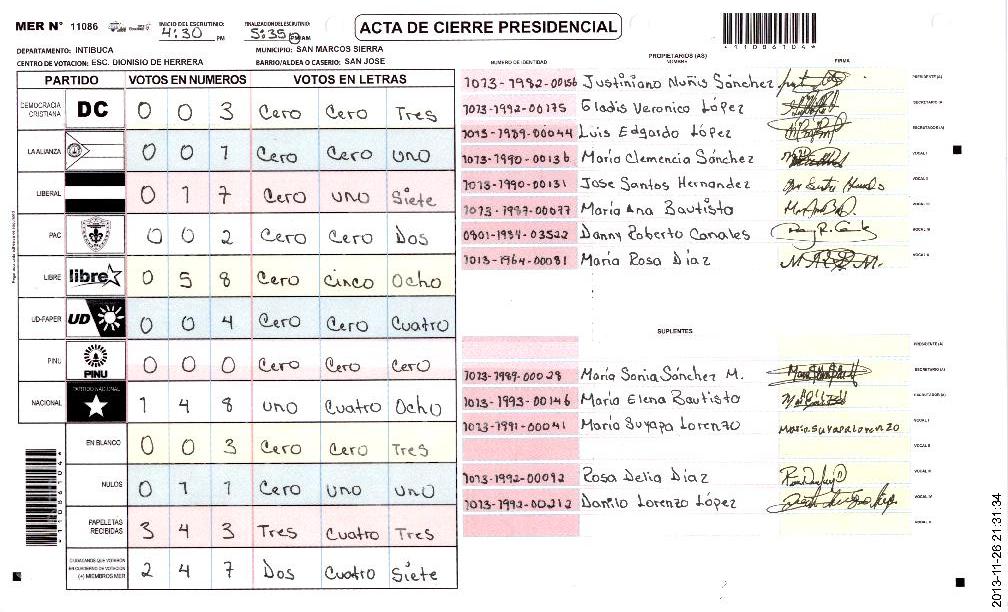 MER N° 11086 INICIO DEL ESCRUTINIO: 4:30 PM FINALIZACION DEL ESCRUTINIO: 5:35 PM AM ACTA DE CIERRE PRESIDENCIAL
*11086104*
DEPARTAMENTO: INTIBUCA MUNICIPIO: SAN MARCOS SIERRA
CENTRO DE VOTACION: ESC. DIONISIO DE HERRERA BARRIO/ALDEA O CASERIO: SAN JOSE
PARTIDO VOTOS EN NUMEROS VOTOS EN LETRAS
DEMOCRACIA CRISTIANA DC 0 0 3 Cero Cero Tres
LA ALIANZA 0 0 1 Cero Cero uno
LIBERAL 0 1 7 Cero uno Siete
PAC 0 0 2 Cero Cero Dos
LIBRE libre 0 5 8 Cero cinco Ocho
UD-FAPER UD 0 0 4 Cero Cero Cuatro
PINU PINU 0 0 0 Cero Cero Cero
NACIONAL PARTIDO NACIONAL 1 4 8 uno Cuatro Ocho
EN BLANCO 0 0 3 Cero Cero Tres
NULOS 0 1 1 Cero uno uno
PAPELETAS RECIBIDAS 3 4 3 Tres Cuatro Tres
CIUDADANOS QUE VOTARON EN CUADERNO DE VOTACION (+) MIEMBROS MER 2 4 7 Dos Cuatro Siete
PROPIETARIOS (AS)
NUMERO DE IDENTIDAD NOMBRE FIRMA
1013-1982-00156 Justiniano Nuñis Sánchez PRESIDENTE(A)
1013-1992-00175 Eladis Veronico López SECRETARIO/A
1013-1989-00044 Luis Edgardo López ESCRUTADOR(A)
1013-1990-00136 María Clemencia Sánchez VOCAL I
1013-1990-00131 Jose Santos Hernandez VOCAL II
1013-1987-00077 María Ana Bautisto VOCAL III
0801-1984-03522 Danny Roberto Canales VOCAL IV
1013-1964-00081 María Rosa Díaz VOCAL V
SUPLENTES
PRESIDENTE(A)
1013-1989-00028 María Sonia Sánchez M. SECRETARIO(A)
1013-1993-00146 María Elena Bautisto ESCRUTADOR(A)
1013-1991-00041 María Suyapa Lorenzo Maria Suyapa Lorenzo VOCAL I
VOCAL II
1013-1992-00092 Rosa Delia Díaz VOCAL III
1013-1992-00212 Danilo Lorenzo López VOCAL IV
VOCAL V
*11086104*
2013-11-26 21:31:34